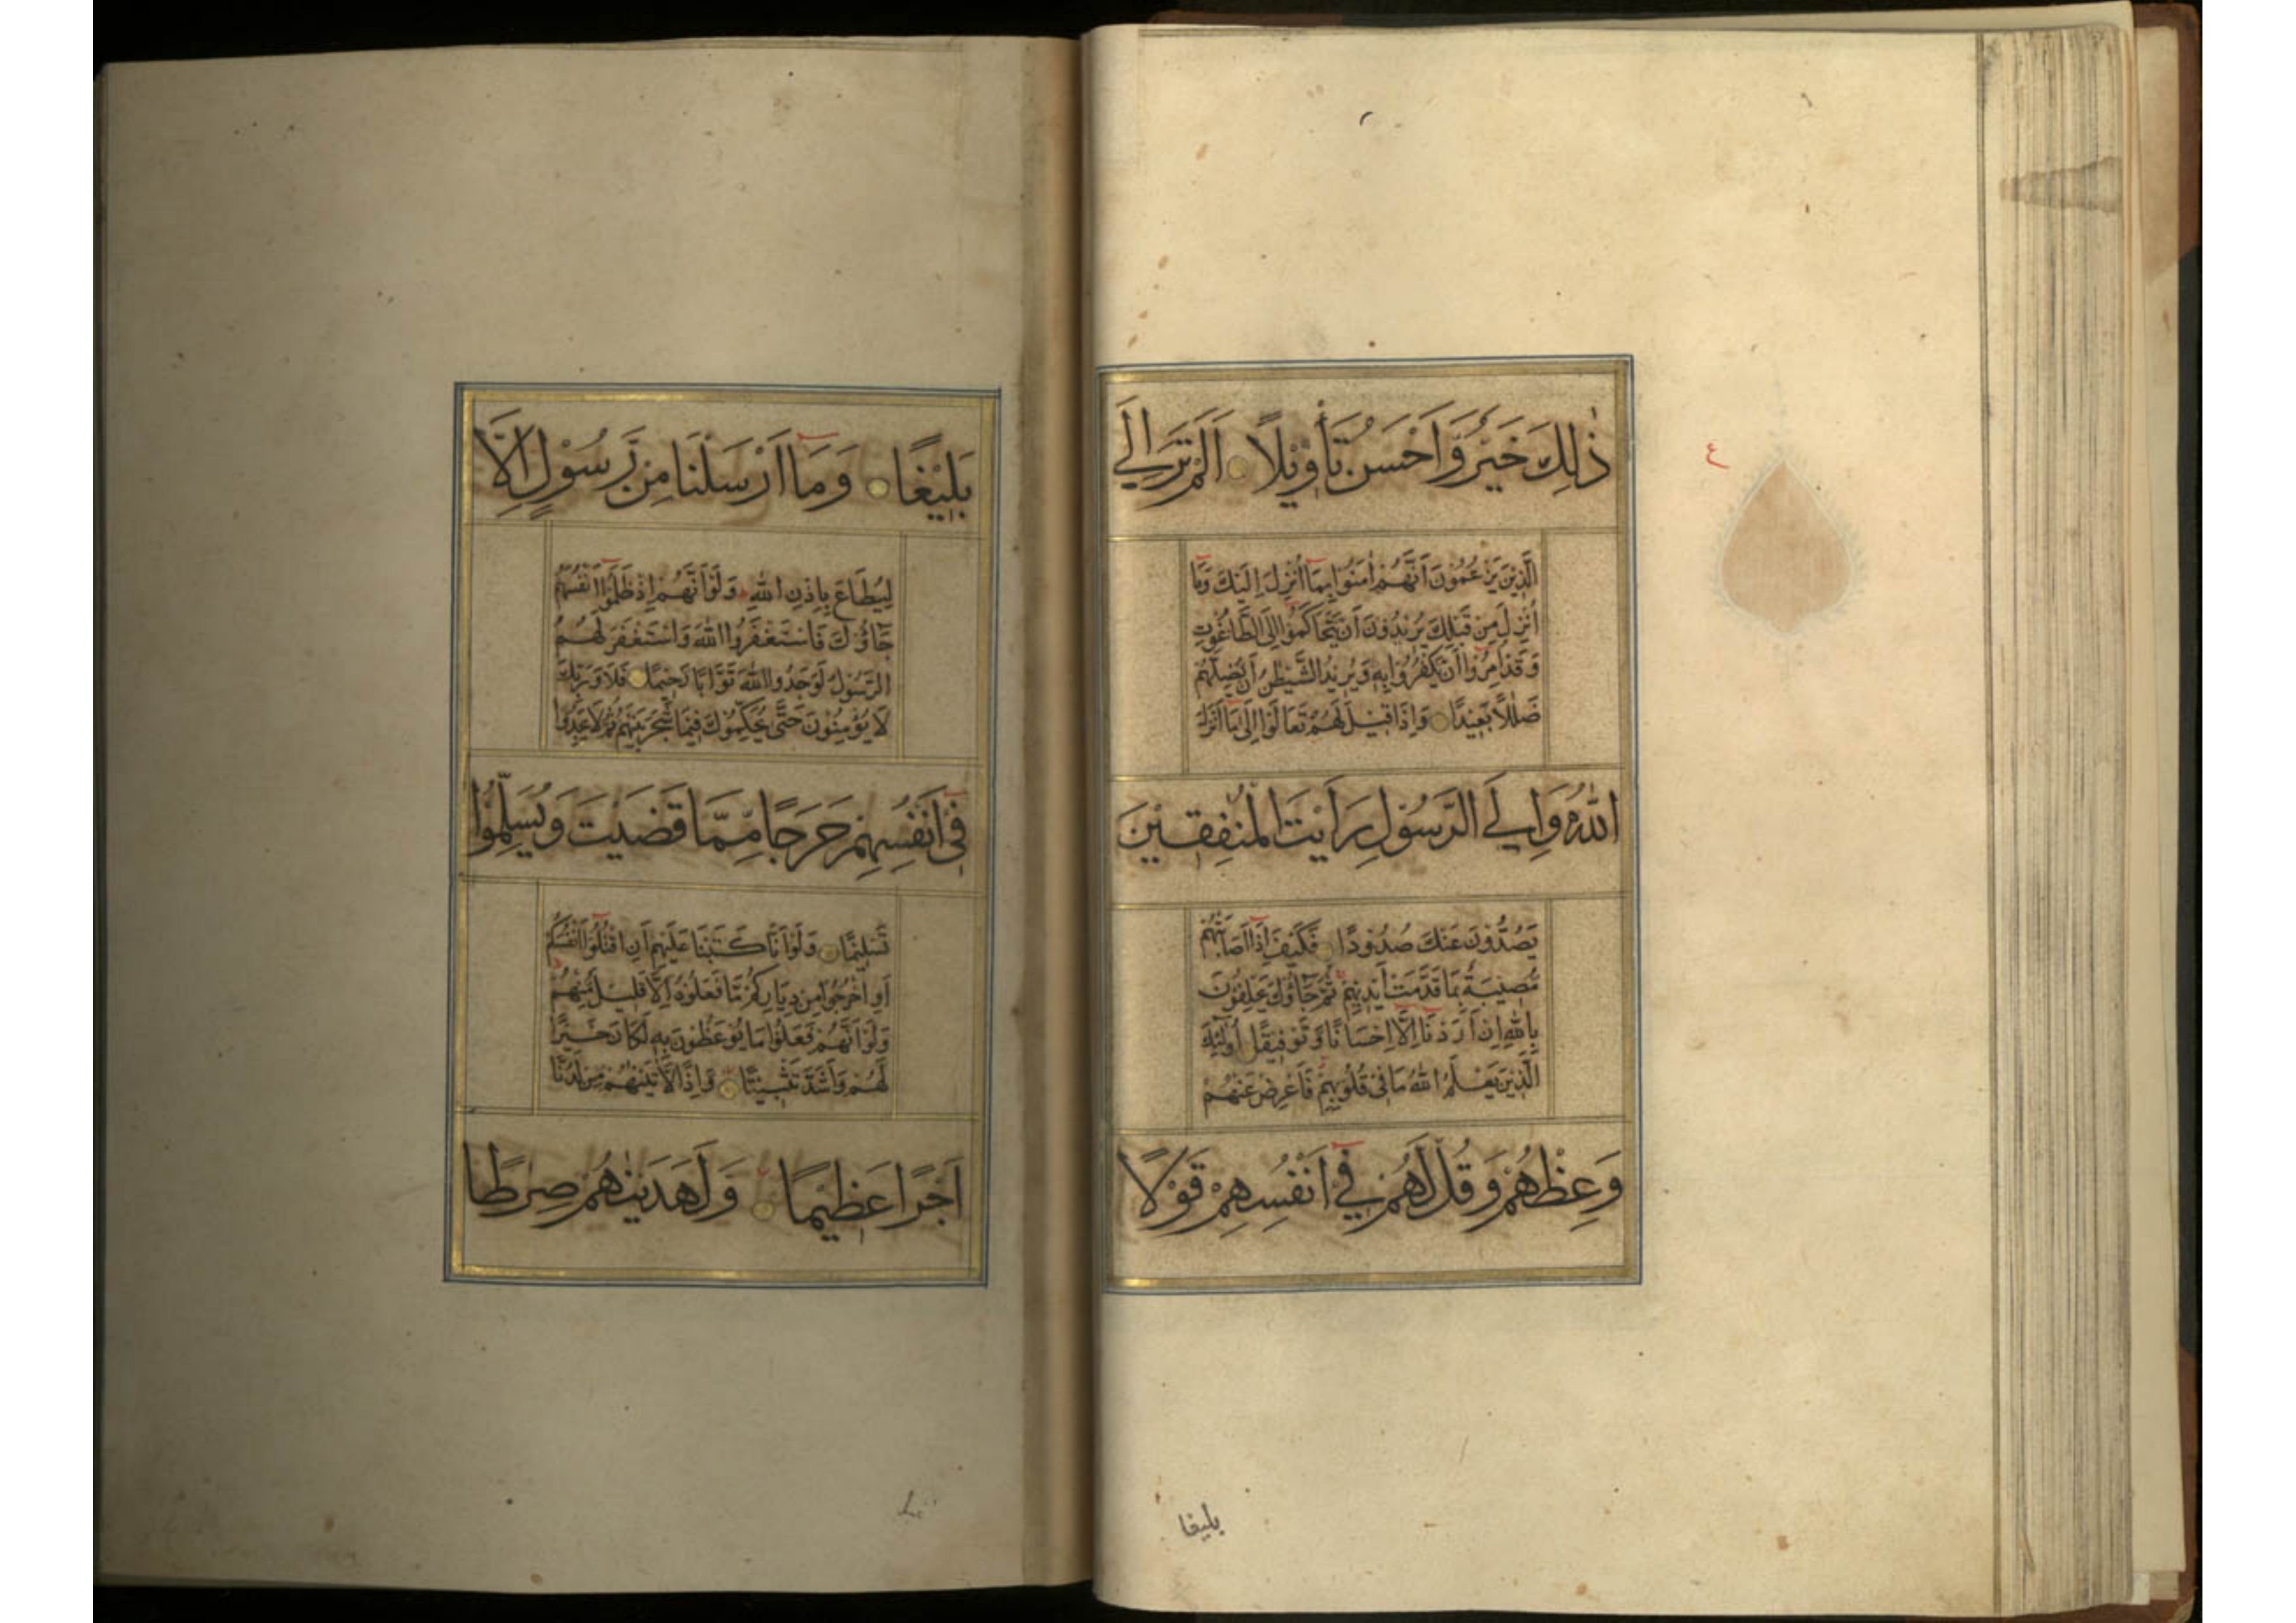 ذٰلِكَ خَيْرٌ وَّاَحْسَنُ تَأْوِيْلًا اَلَمْ تَرَ اِلَى
الَّذِيْنَ يَزْعُمُوْنَ اَنَّهُمْ اٰمَنُوْا بِمَا اُنْزِلَ اِلَيْكَ وَمَا
اُنْزِلَ مِنْ قَبْلِكَ يُرِيْدُوْنَ اَنْ يَّتَحَاكَمُوْا اِلَى الطَّاغُوْتِ
وَقَدْ اُمِرُوْا اَنْ يَّكْفُرُوْا بِهٖ وَيُرِيْدُ الشَّيْطٰنُ اَنْ يُّضِلَّهُمْ
ضَلٰلًا بَعِيْدًا وَاِذَا قِيْلَ لَهُمْ تَعَالَوْا اِلٰى مَا اَنْزَلَ
اللّٰهُ وَاِلَى الرَّسُوْلِ رَاَيْتَ الْمُنٰفِقِيْنَ
يَصُدُّوْنَ عَنْكَ صُدُوْدًا فَكَيْفَ اِذَا اَصَابَتْهُمْ
مُّصِيْبَةٌ بِمَا قَدَّمَتْ اَيْدِيْهِمْ ثُمَّ جَاؤُكَ يَحْلِفُوْنَ
بِاللّٰهِ اِنْ اَرَدْنَا اِلَّا اِحْسَانًا وَّتَوْفِيْقًا اُولٰئِكَ
الَّذِيْنَ يَعْلَمُ اللّٰهُ مَا فِيْ قُلُوْبِهِمْ فَاَعْرِضْ عَنْهُمْ
وَعِظْهُمْ وَقُلْ لَّهُمْ فِيْ اَنْفُسِهِمْ قَوْلًا
بليغا
ع
بَلِيْغًا وَمَا اَرْسَلْنَا مِنْ رَّسُوْلٍ اِلَّا
لِيُطَاعَ بِاِذْنِ اللّٰهِ وَلَوْ اَنَّهُمْ اِذْ ظَلَمُوْا اَنْفُسَهُمْ
جَاؤُكَ فَاسْتَغْفَرُوا اللّٰهَ وَاسْتَغْفَرَ لَهُمُ
الرَّسُوْلُ لَوَجَدُوا اللّٰهَ تَوَّابًا رَّحِيْمًا فَلَا وَرَبِّكَ
لَا يُؤْمِنُوْنَ حَتّٰى يُحَكِّمُوْكَ فِيْمَا شَجَرَ بَيْنَهُمْ ثُمَّ لَا يَجِدُوْا
فِيْ اَنْفُسِهِمْ حَرَجًا مِّمَّا قَضَيْتَ وَيُسَلِّمُوْا
تَسْلِيْمًا وَلَوْ اَنَّا كَتَبْنَا عَلَيْهِمْ اَنِ اقْتُلُوْا اَنْفُسَكُمْ
اَوِ اخْرُجُوْا مِنْ دِيَارِكُمْ مَّا فَعَلُوْهُ اِلَّا قَلِيْلٌ مِّنْهُمْ
وَلَوْ اَنَّهُمْ فَعَلُوْا مَا يُوْعَظُوْنَ بِهٖ لَكَانَ خَيْرًا
لَّهُمْ وَاَشَدَّ تَثْبِيْتًا وَاِذًا لَّاٰتَيْنٰهُمْ مِّنْ لَّدُنَّا
اَجْرًا عَظِيْمًا وَلَهَدَيْنٰهُمْ صِرَاطًا